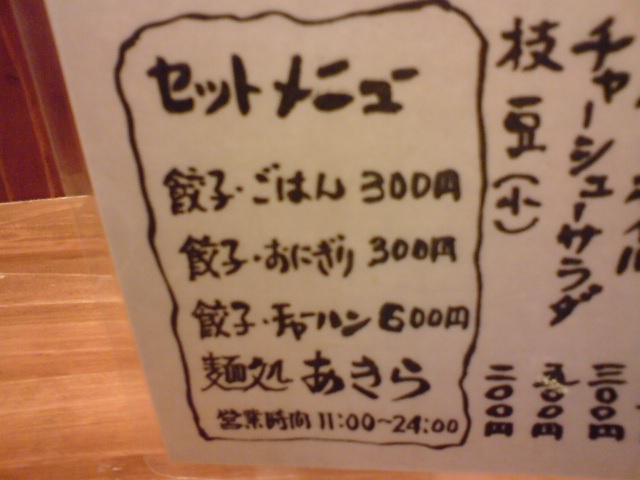 セットメニュー
餃子・ごはん 300円
餃子・おにぎり 300円
餃子・チャーハン 600円
麺処 あきら
営業時間 11:00~24:00
チャーシューサラダ
枝豆(小)
三〇〇円
二〇〇円